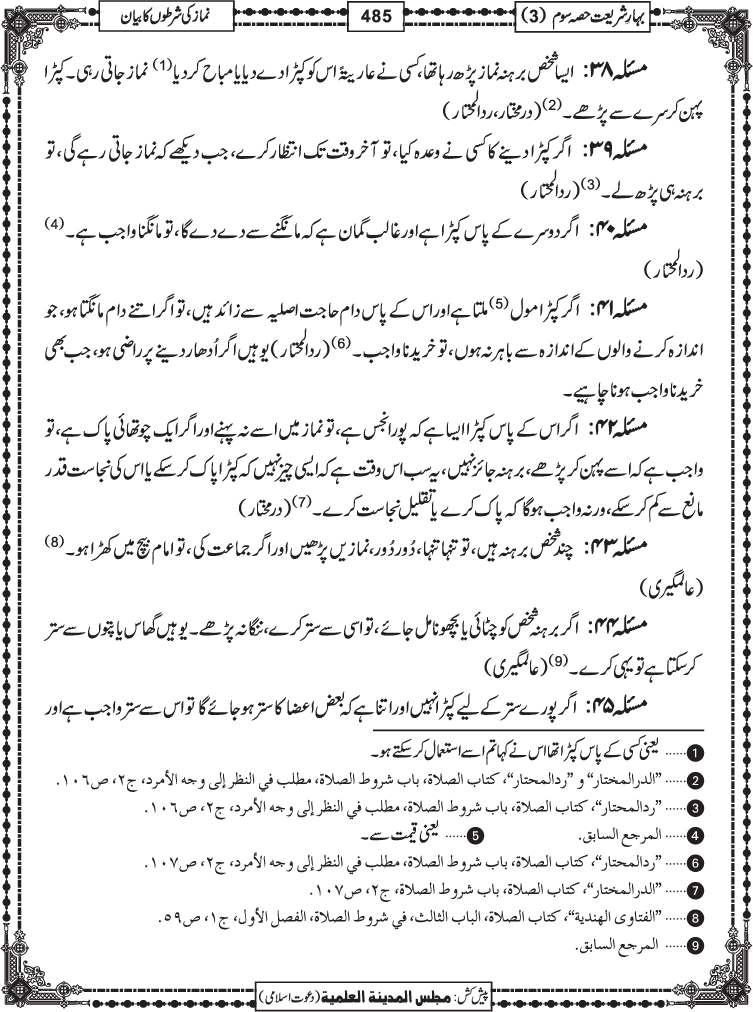 بہارِ شریعت حصہ سوم (3)
485
نماز کی شرطوں کا بیان
مسئلہ ۳۸: ایسا شخص برہنہ نماز پڑھ رہا تھا، کسی نے عاریۃً اس کو کپڑا دے دیا یا مباح کر دیا (1) نماز جاتی رہی۔ کپڑا
پہن کر سرے سے پڑھے۔ (2) (درمختار، ردالمحتار)
مسئلہ ۳۹: اگر کپڑا دینے کا کسی نے وعدہ کیا، تو آخر وقت تک انتظار کرے، جب دیکھے کہ نماز جاتی رہے گی، تو
برہنہ ہی پڑھ لے۔ (3) (ردالمحتار)
مسئلہ ۴۰: اگر دوسرے کے پاس کپڑا ہے اور غالب گمان ہے کہ مانگنے سے دے دے گا، تو مانگنا واجب ہے۔ (4)
(ردالمحتار)
مسئلہ ۴۱: اگر کپڑا مول (5) ملتا ہے اور اس کے پاس دام حاجت اصلیہ سے زائد ہیں، تو اگر اتنے دام مانگتا ہو، جو
اندازہ کرنے والوں کے اندازہ سے باہر نہ ہوں، تو خریدنا واجب۔ (6) (ردالمحتار) یوہیں اگر اُدھار دینے پر راضی ہو، جب بھی
خریدنا واجب ہونا چاہیے۔
مسئلہ ۴۲: اگر اس کے پاس کپڑا ایسا ہے کہ پورا نجس ہے، تو نماز میں اسے نہ پہنے اور اگر ایک چوتھائی پاک ہے، تو
واجب ہے کہ اسے پہن کر پڑھے، برہنہ جائز نہیں، یہ سب اس وقت ہے کہ ایسی چیز نہیں کہ کپڑا پاک کر سکے یا اس کی نجاست قدر
مانع سے کم کر سکے، ورنہ واجب ہوگا کہ پاک کرے یا تقلیل نجاست کرے۔ (7) (درمختار)
مسئلہ ۴۳: چند شخص برہنہ ہیں، تو تنہا تنہا، دُور دُور، نمازیں پڑھیں اور اگر جماعت کی، تو امام بیچ میں کھڑا ہو۔ (8)
(عالمگیری)
مسئلہ ۴۴: اگر برہنہ شخص کو چٹائی یا بچھونا مل جائے، تو اسی سے ستر کرے، ننگا نہ پڑھے۔ یوہیں گھاس یا پتوں سے ستر
کر سکتا ہے تو یہی کرے۔ (9) (عالمگیری)
مسئلہ ۴۵: اگر پورے ستر کے لیے کپڑا نہیں اور اتنا ہے کہ بعض اعضا کا ستر ہو جائے گا تو اس سے ستر واجب ہے اور
1 ...... یعنی کسی کے پاس کپڑا تھا اس نے کہا تم اسے استعمال کر سکتے ہو۔
2 ...... ”الدرالمختار“ و ”ردالمحتار“، كتاب الصلاة، باب شروط الصلاة، مطلب في النظر إلى وجه الأمرد، ج٢، ص١٠٦.
3 ...... ”ردالمحتار“، كتاب الصلاة، باب شروط الصلاة، مطلب في النظر إلى وجه الأمرد، ج٢، ص١٠٦.
4 ...... المرجع السابق. 5 ...... یعنی قیمت سے۔
6 ...... ”ردالمحتار“، كتاب الصلاة، باب شروط الصلاة، مطلب في النظر إلى وجه الأمرد، ج٢، ص١٠٧.
7 ...... ”الدرالمختار“، كتاب الصلاة، باب شروط الصلاة، ج٢، ص١٠٧.
8 ...... ”الفتاوى الهندية“، كتاب الصلاة، الباب الثالث، في شروط الصلاة، الفصل الأول، ج١، ص٥٩.
9 ...... المرجع السابق.
پیش کش: مجلس المدينة العلمية (دعوت اسلامی)